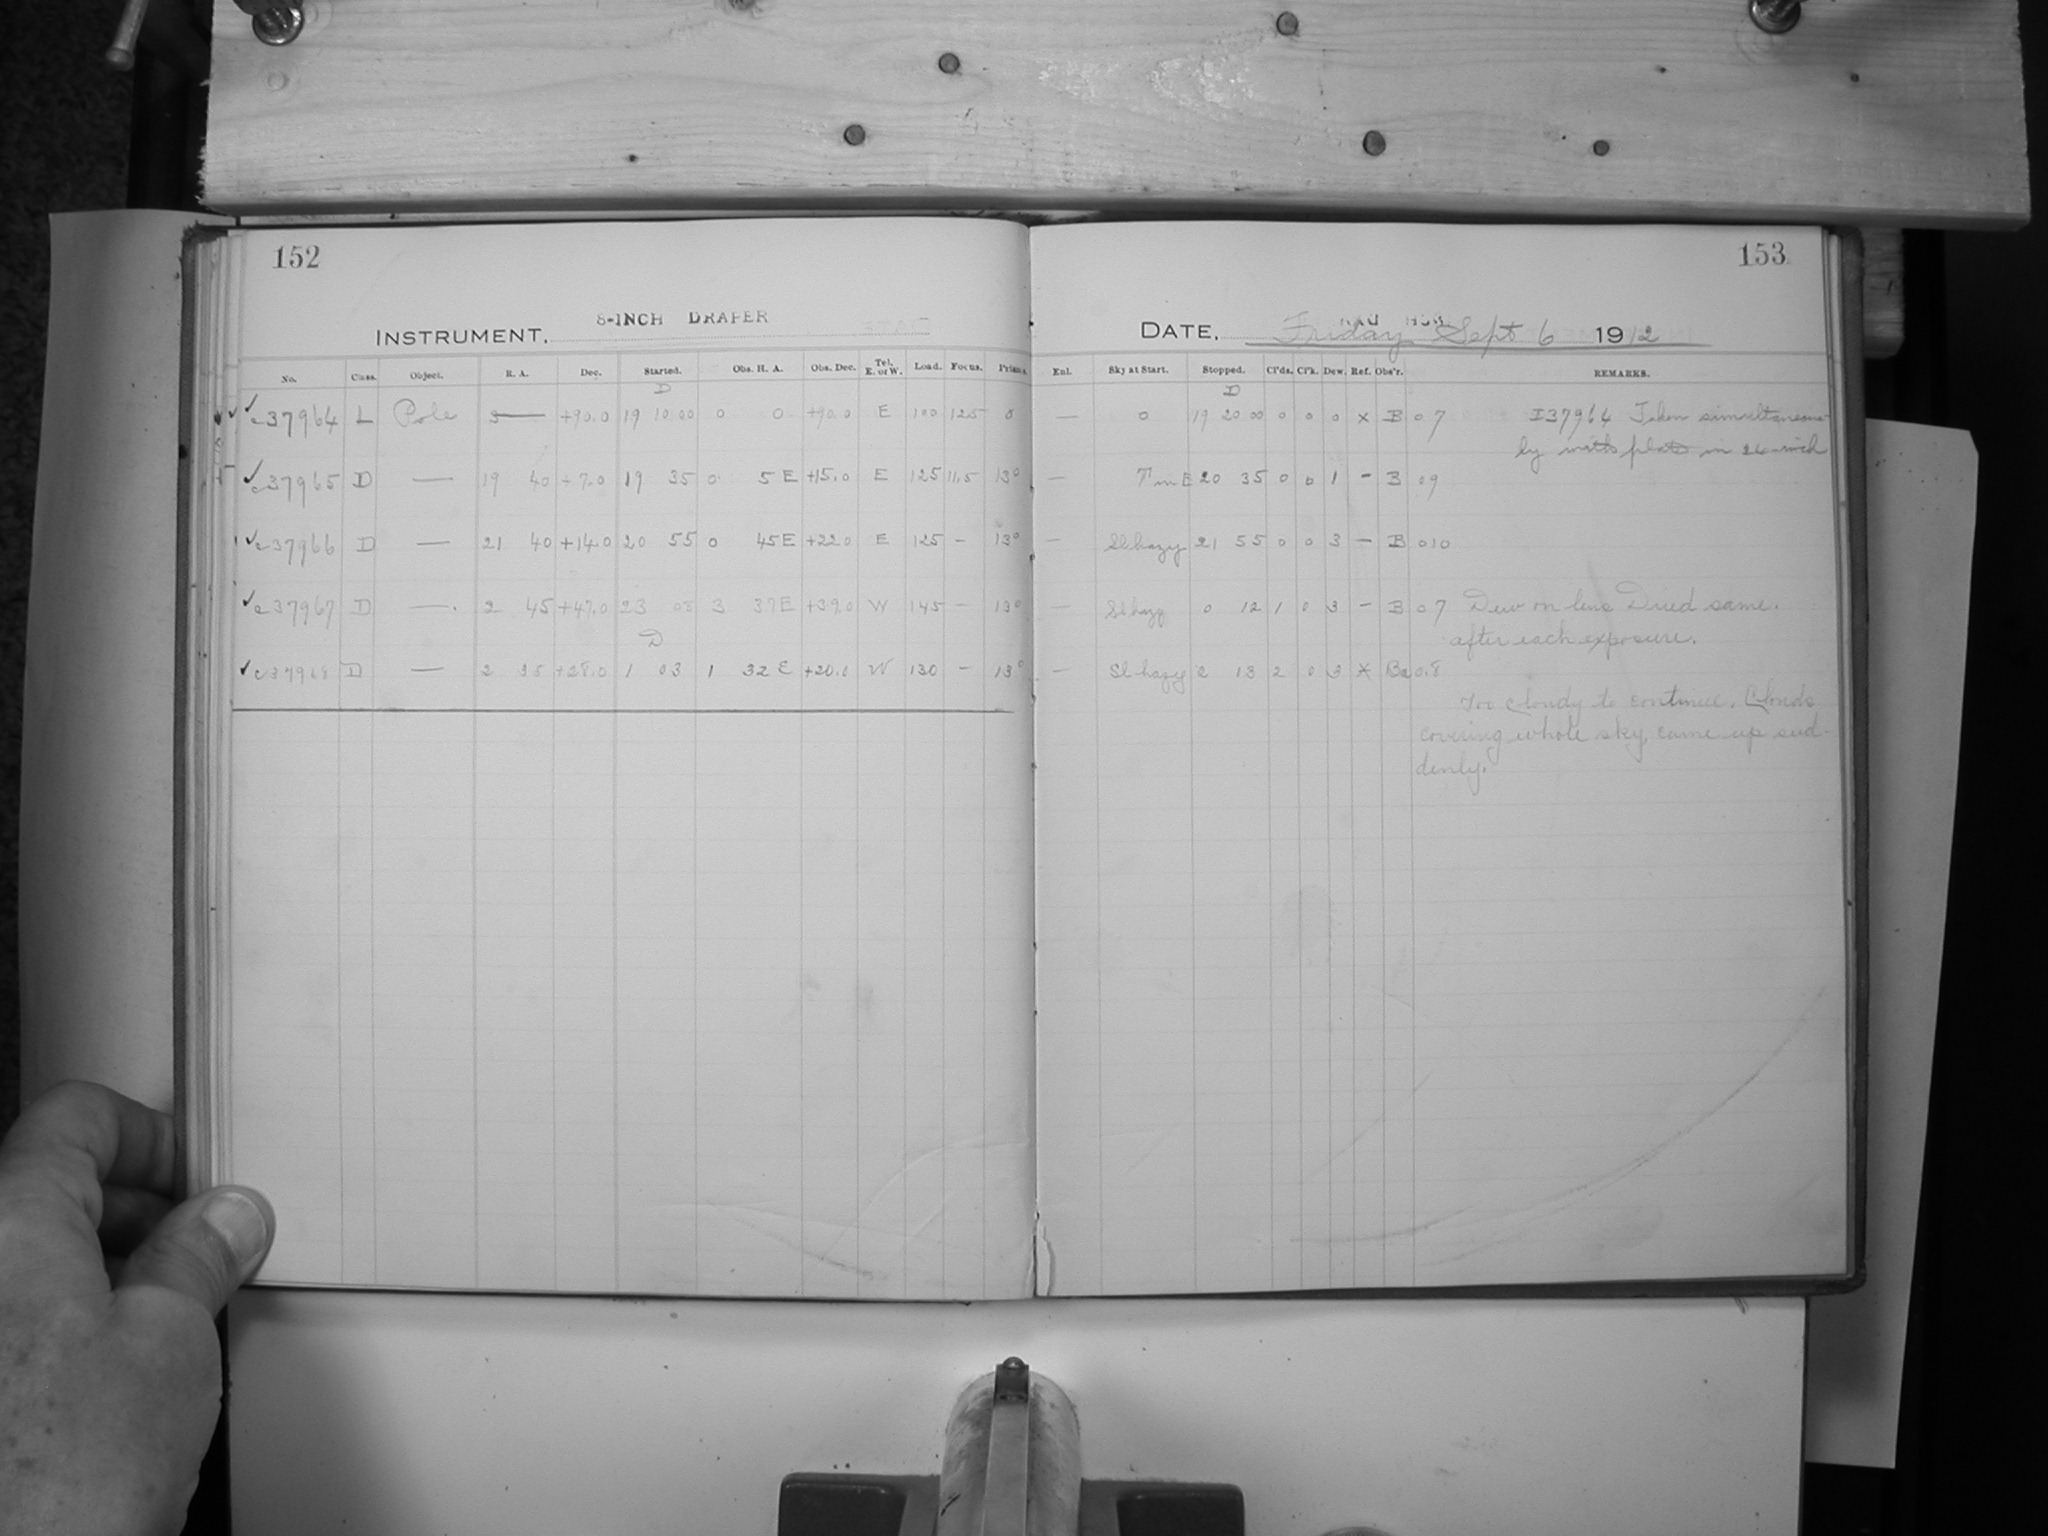 152
153
8-INCH DRAPER
INSTRUMENT.
DATE. Friday Sept 6 1912
No. Class. Object. R. A. Dec. Started. Obs. H. A. Obs. Dec. Tel. E. or W. Load. Focus. Prism. Enl. Sky at Start. Stopped. Cl'ds. Cl'k. Dew. Ref. Obs'r. REMARKS.
D D
c37964 L Pole +90.0 19 10 00 0 0 +90.0 E 100 12.5 0 — 0 19 20 00 0 0 0 x B 07 I37964 Taken simultaneous-
ly with plate in 24-inch
c37965 D — 19 40 +7.0 19 35 0 5 E +15.0 E 125 11.5 13° — 20 35 0 0 1 — B 09
c37966 D — 21 40 +14.0 20 55 0 45 E +22.0 E 125 — 13° — Sl hazy 21 55 0 0 3 — B 010
c37967 D — 2 45 +47.0 23 08 3 37 E +39.0 W 145 — 13° — Sl hazy 0 12 1 0 3 — B 07 Dew on lens Dried same
after each exposure.
D
c37968 D — 2 35 +28.0 1 03 1 32 E +20.0 W 130 — 13° — Sl hazy 2 13 2 0 3 x Ba 08
Too cloudy to continue. Clouds
covering whole sky, came up sud-
denly.